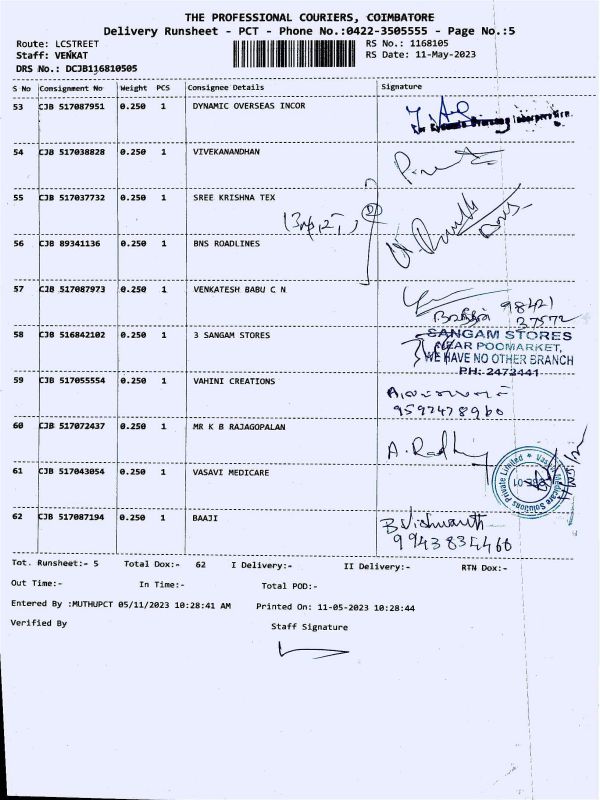 THE PROFESSIONAL COURIERS, COIMBATORE
Delivery Runsheet - PCT - Phone No.:0422-3505555 - Page No.:5
Route: LCSTREET
RS No.: 1168105
Staff: VENKAT
RS Date: 11-May-2023
DRS No.: DCJB116810505
S No Consignment No Weight PCS Consignee Details Signature
53 CJB 517087951 0.250 1 DYNAMIC OVERSEAS INCOR
54 CJB 517038828 0.250 1 VIVEKANANDHAN
55 CJB 517037732 0.250 1 SREE KRISHNA TEX
56 CJB 89341136 0.250 1 BNS ROADLINES
57 CJB 517087973 0.250 1 VENKATESH BABU C N
98421
37572
58 CJB 516842102 0.250 1 3 SANGAM STORES
SANGAM STORES
NEAR POOMARKET,
WE HAVE NO OTHER BRANCH
PH: 2472441
59 CJB 517055554 0.250 1 VAHINI CREATIONS
9597478960
60 CJB 517072437 0.250 1 MR K B RAJAGOPALAN
61 CJB 517043054 0.250 1 VASAVI MEDICARE
62 CJB 517087194 0.250 1 BAAJI
B Vishwanth
9943835466
Tot. Runsheet:- 5 Total Dox:- 62 I Delivery:- II Delivery:- RTN Dox:-
Out Time:- In Time:- Total POD:-
Entered By :MUTHUPCT 05/11/2023 10:28:41 AM Printed On: 11-05-2023 10:28:44
Verified By Staff Signature